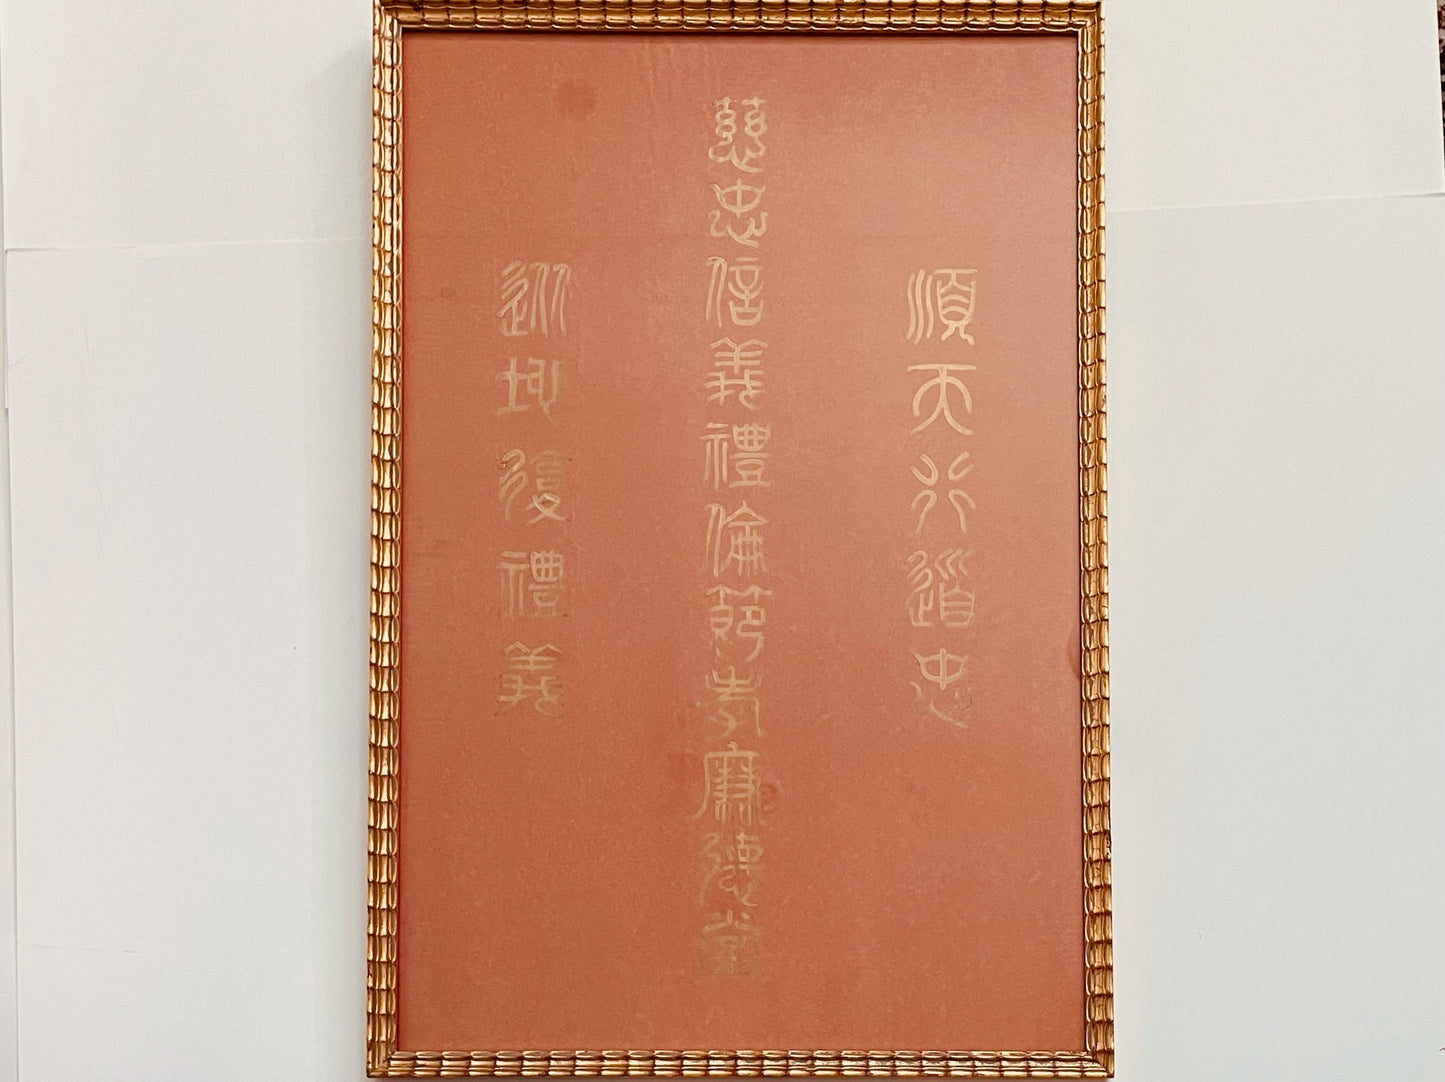 順天行道忠
慈忠信義禮倫節孝廉德堂
巡地復禮義